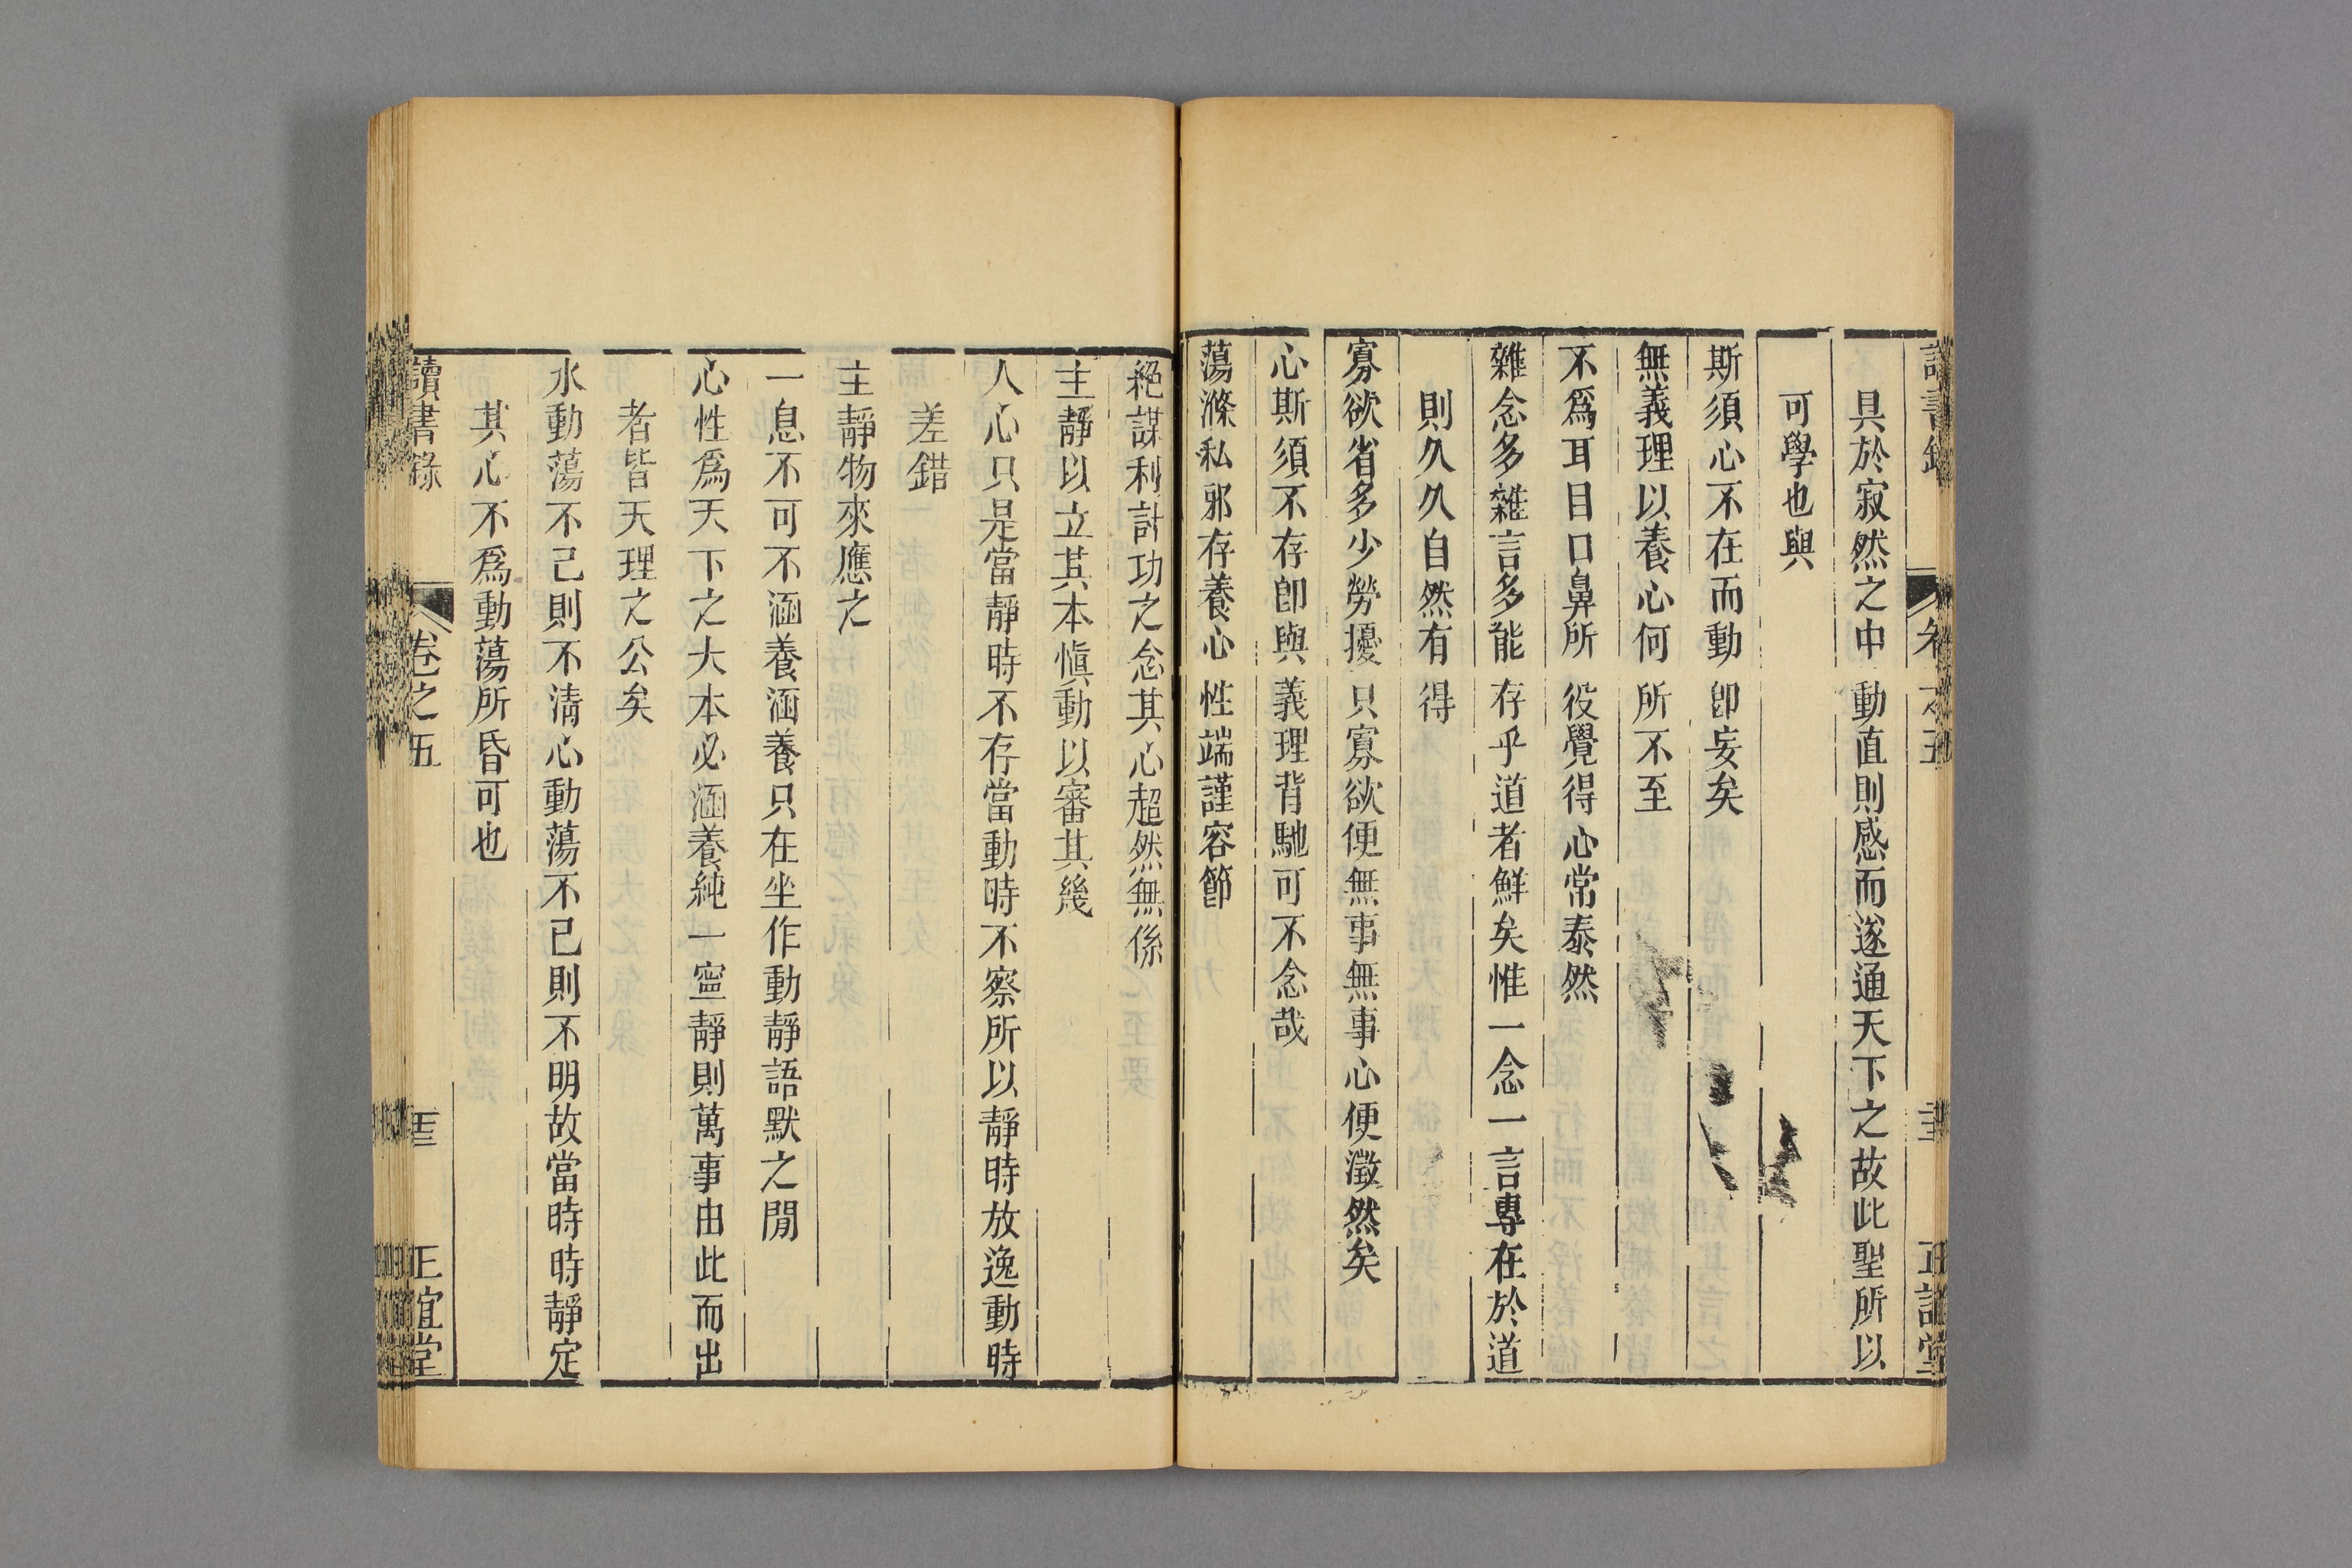 具於寂然之中動直則感而遂通天下之故此聖所以
可學也與
斯須心不在而動卽妄矣
無義理以養心何所不至
不爲耳目口鼻所役覺得心常泰然
雜念多雜言多能存乎道者鮮矣惟一念一言專在於道
則久久自然有得
寡欲省多少勞擾只寡欲便無事無事心便澂然矣
心斯須不存卽與義理背馳可不念哉
蕩滌私邪存養心性端謹容節
絕謀利計功之念其心超然無係
主靜以立其本愼動以審其幾
人心只是當靜時不存當動時不察所以靜時放逸動時
差錯
主靜物來應之
一息不可不涵養涵養只在坐作動靜語默之閒
心性爲天下之大本必涵養純一寍靜則萬事由此而出
者皆天理之公矣
水動蕩不已則不淸心動蕩不已則不明故當時時靜定
其心不爲動蕩所昏可也
讀書錄 卷之五 正誼堂